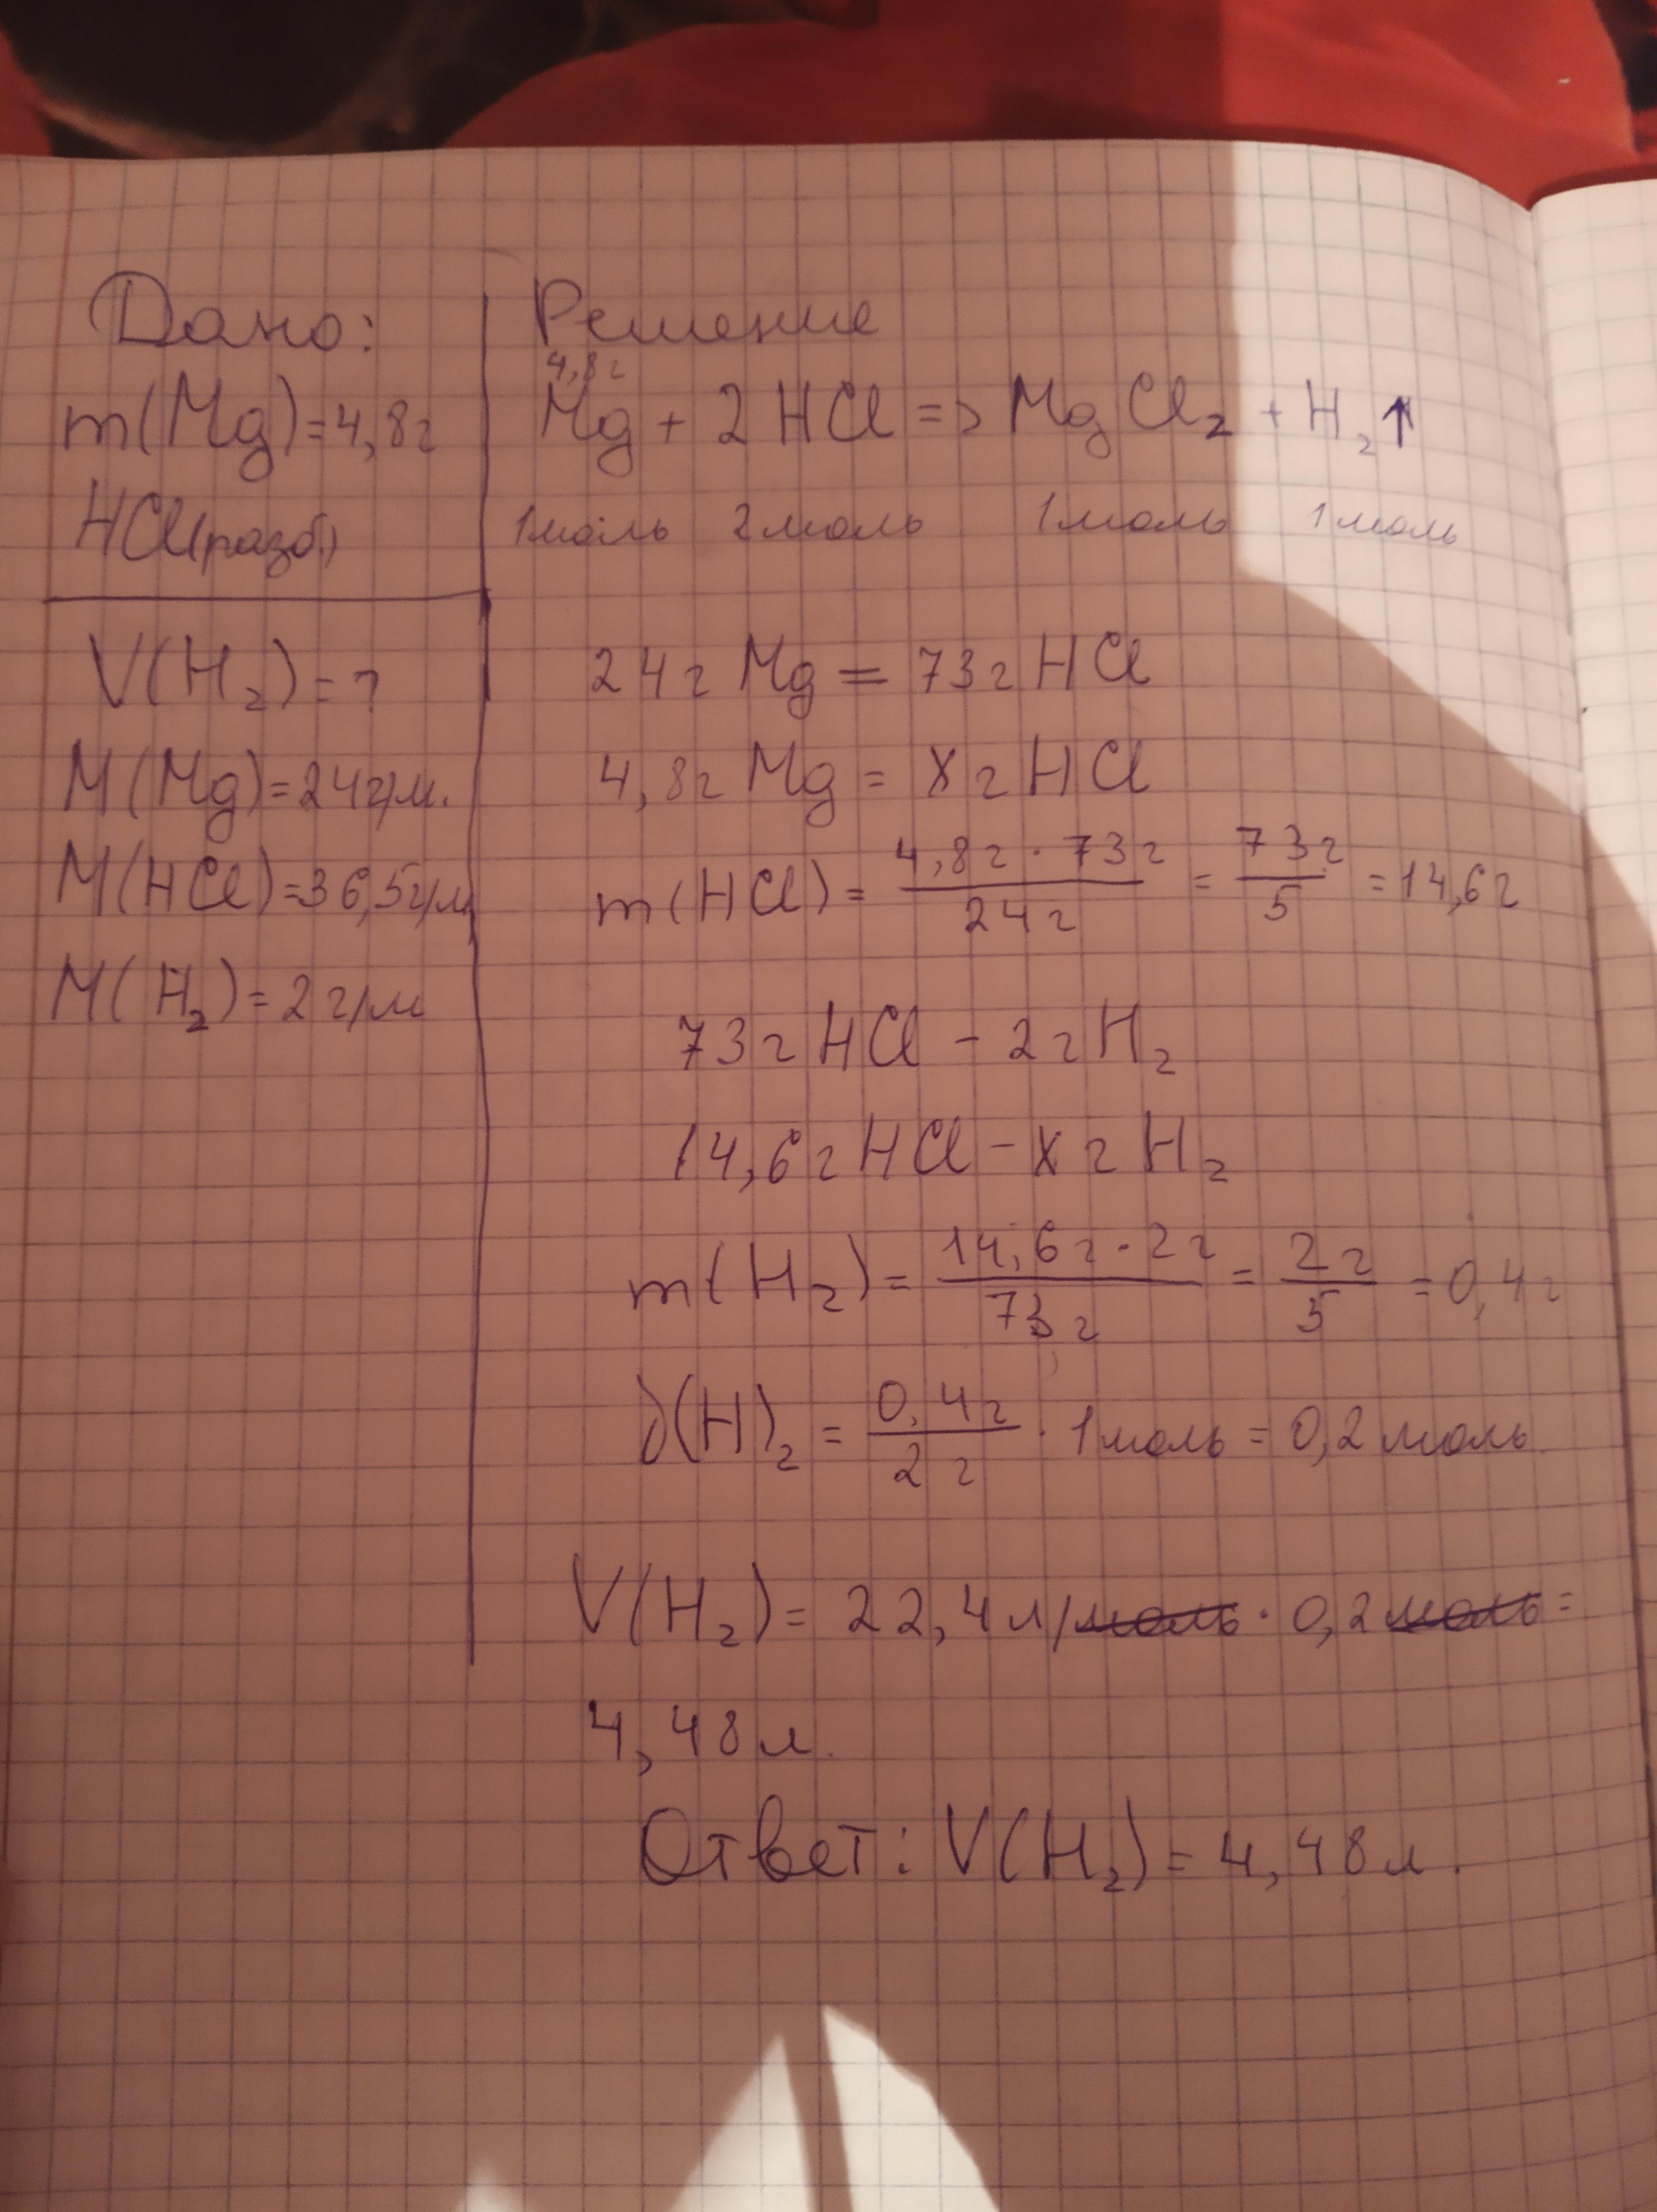 Дано:
m(Mg)=4,8г
HCl(разб)
V(H₂)=?
M(Mg)=24г/м.
M(HCl)=36,5г/м
M(H₂)=2г/м
Решение
4,8г
Mg + 2HCl => MgCl₂ + H₂↑
1моль 2моль 1моль 1моль
24г Mg = 73г HCl
4,8г Mg = X г HCl
m(HCl) = 4,8г · 73г / 24г = 73г / 5 = 14,6г
73г HCl - 2г H₂
14,6г HCl - X г H₂
m(H₂) = 14,6г · 2г / 73г = 2г / 5 = 0,4г
∂(H)₂ = 0,4г / 2г · 1моль = 0,2моль
V(H₂) = 22,4л/моль · 0,2моль =
4,48л.
Ответ: V(H₂) = 4,48л.